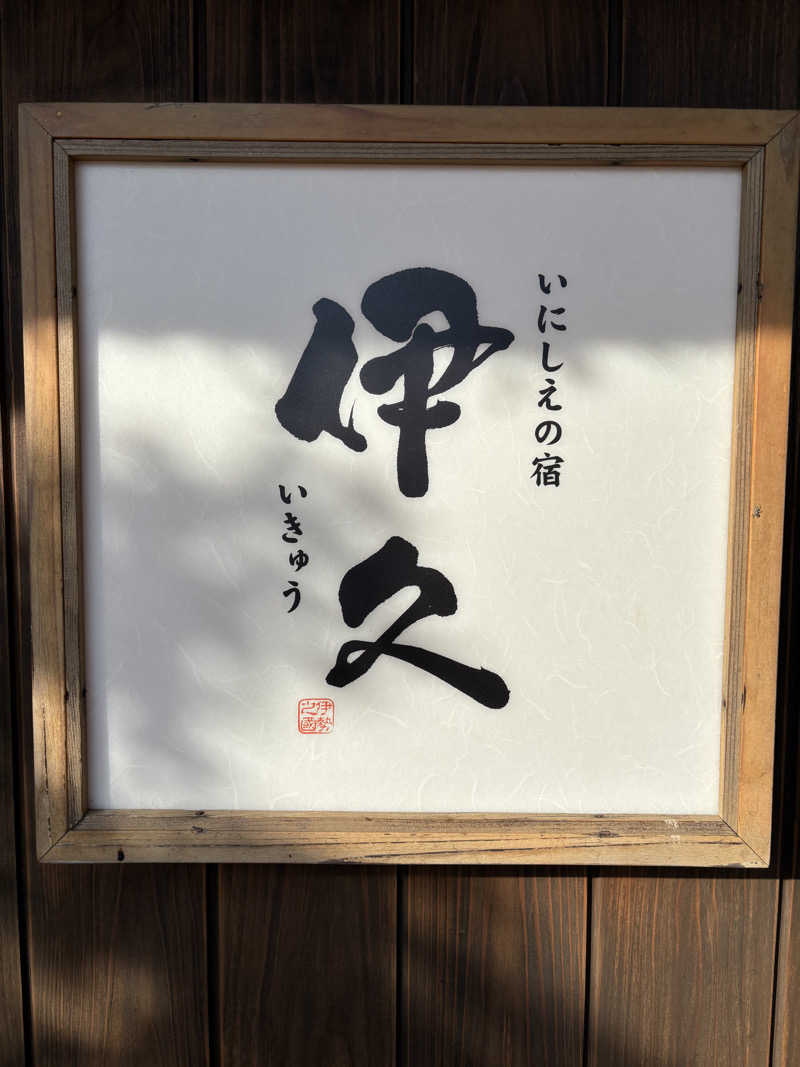 いにしえの宿
伊久
いきゅう
伊勢
之國